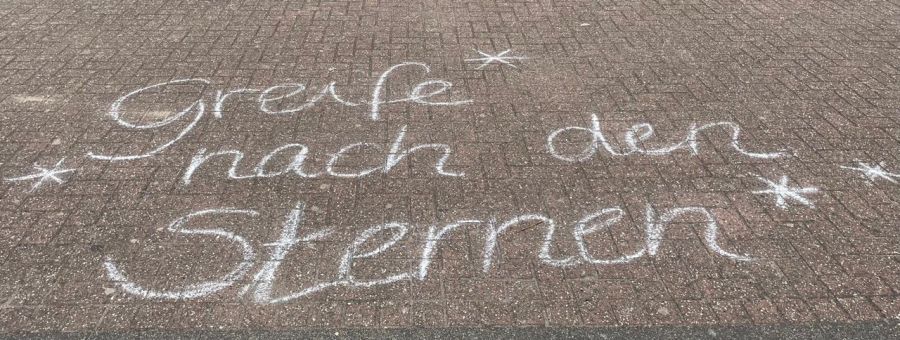 Greife
nach den
Sternen